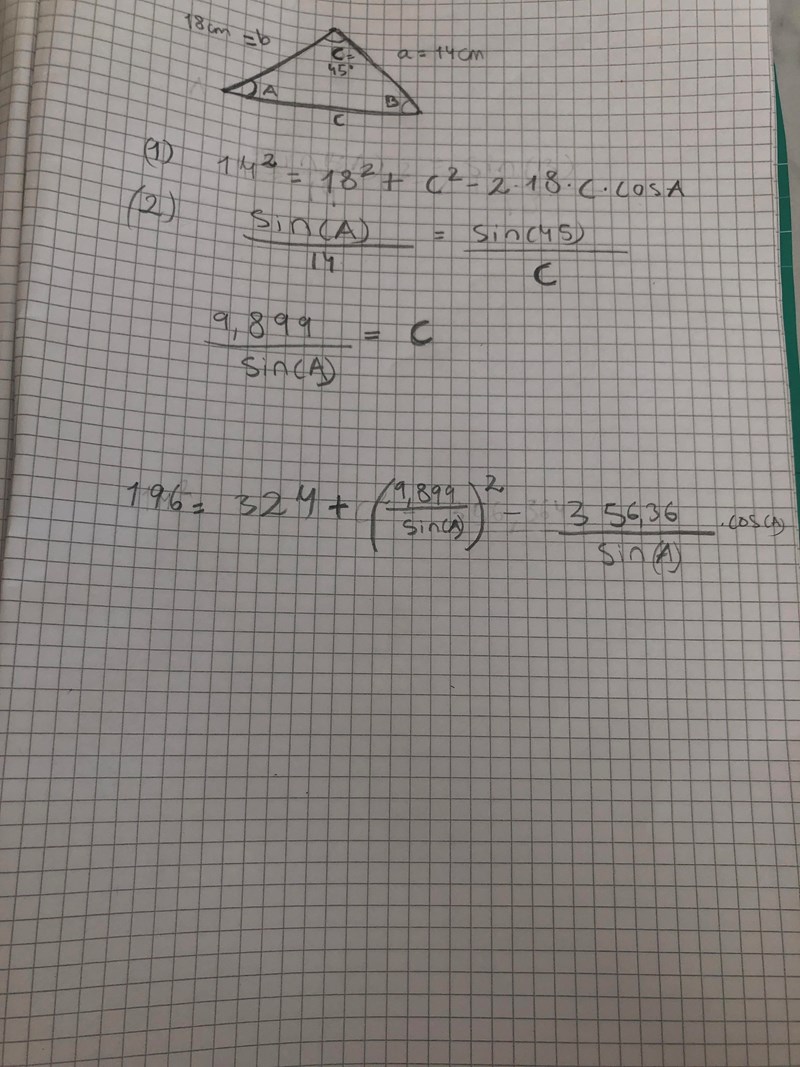 18cm = b
C = 45°
a = 14cm
A
B
c
(1) 14² = 18² + c² - 2·18·c·cosA
(2) sin(A)/14 = sin(45)/c
9,899/sin(A) = c
196 = 324 + (9,899/sin(A))² - 356,36/sin(A) · cos(A)